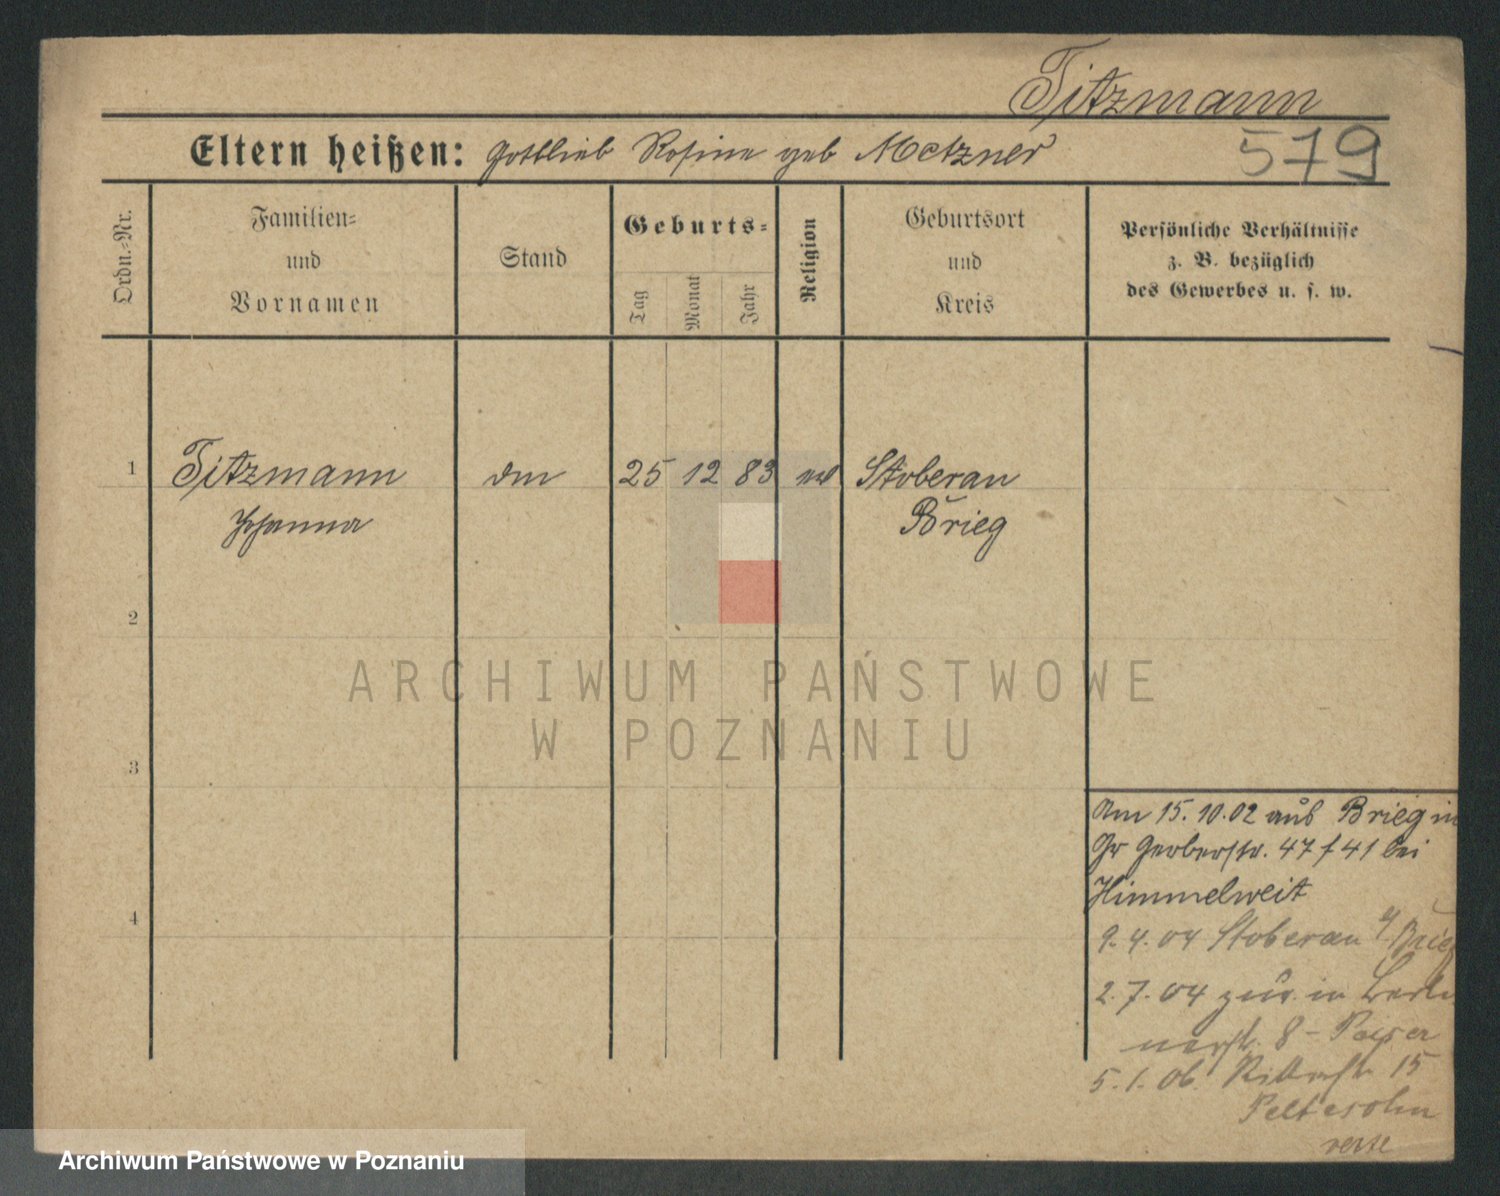 Titzmann
Eltern heißen: Gottlieb Rosine geb Metzner
579
Ordn.-Nr.
Familien-
und
Vornamen
Stand
Geburts-
Tag
Monat
Jahr
Religion
Geburtsort
und
Kreis
Persönliche Verhältnisse
z. B. bezüglich
des Gewerbes u. s. w.
1 Titzmann 25 12 83 Stoberau
Johanna Brieg
2
ARCHIWUM PAŃSTWOWE
W POZNANIU
3
Am 15.10.02 aus Brieg in
Gr Gerberstr. 47 f 41 bei
Himmelweit
4
9.4.04 Stoberau Brieg
2.7.04 zur. in Berli
nerstr. 8 -
5.1.06. Ritterstr 15
Peltesohn
verte
Archiwum Państwowe w Poznaniu